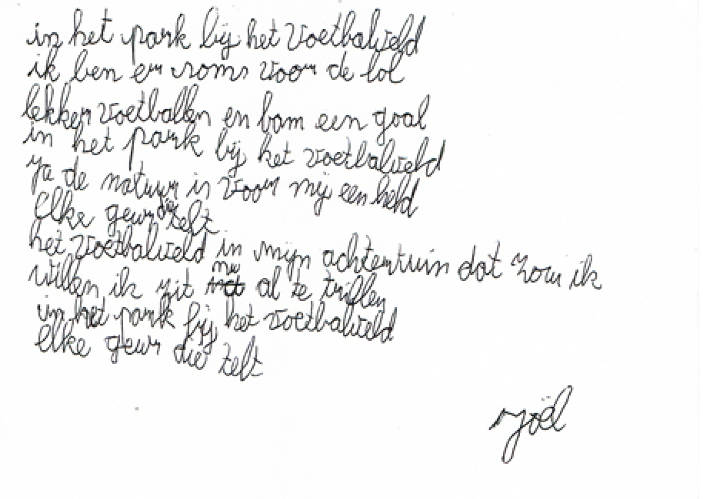 in het park bij het voetbalveld
ik ben er soms voor de lol
lekker voetballen en bam een goal
in het park bij het voetbalveld
ja de natuur is voor mij een held
Elke geur die telt
het voetbalveld in mijn achtertuin dat zou ik
willen ik zit nu al te trillen
in het park bij het voetbalveld
Elke geur die telt
Joël